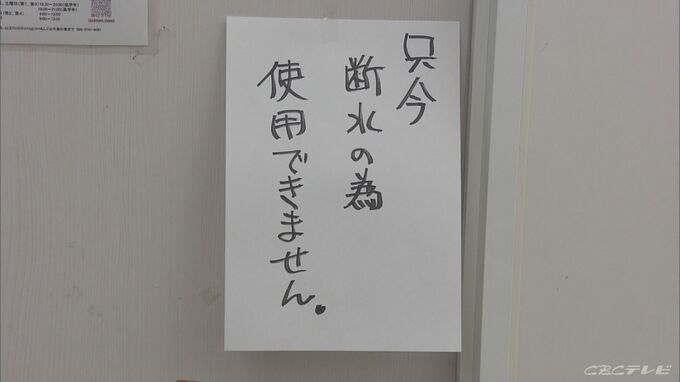 只今
断水の為
使用できません。
CBCテレビ